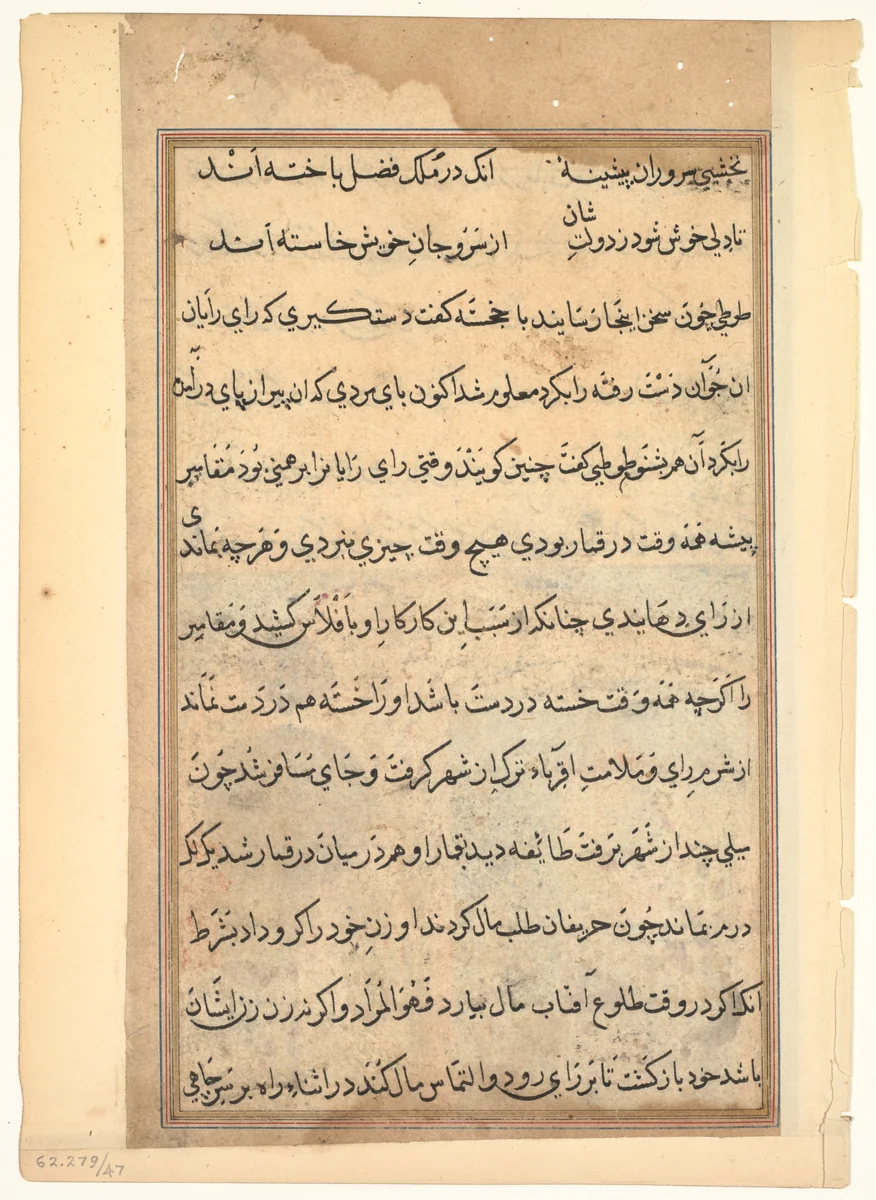 نخشبی سروران پیشینهٔ انک در ملک فضل باخته اند
تا دلی خوش شود ز دولتِ شان از سَر و جانِ خویش خاسته اند
طوطی چون سخن اینجا رسانید با خجسته کفت دستکیری که رای رایان
ان جوان دست رفته را بکرد معلوم شد اکنون بای مردی که ان پیر از پای در آمده
را بکرد آن هم بشنو طوطی کفت چنین کویند وقتی رای رایانرا برهمنی بود مقامر
پیشه همه وقت در قمار بودی هیچ وقت چیزی نبردی و هرچه بماندی
از رای دهایندی چنانکه از سبب این کار کارِ او با فلاس کشید و مقامر
را اکرچه همه وقت خسته در دست باشد او را خسته هم در دست نماند
از شرم رای و ملامتِ اقرباء ترک از شهر کرفت و جای مسافر شد چون
میلی چند از شهر برفت طائفه دید بقمار او هم در میان در قمار شد یک لک
درم بماند چون حریفان طلب مال کردند او زنِ خود را کرو داد بشرط
انک اکر در وقت طلوع آفتاب مال بیارد فهو المراد و اکر نه زن زن ایشان
باشد خود باز کشت تا بر رای رود و التماس مال کند در اثناء راه بر سرِ چاهی
62.279/47